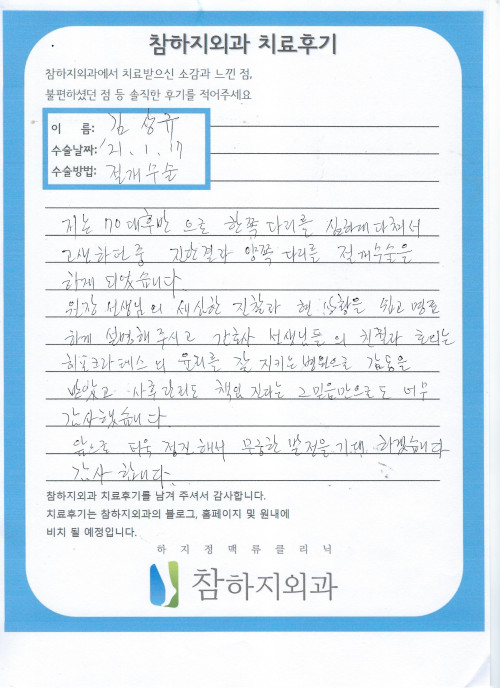 참하지외과 치료후기
참하지외과에서 치료받으신 소감과 느낀 점,
불편하셨던 점 등 솔직한 후기를 적어주세요
이 름: 김상규
수술날짜: '21. 1. 17
수술방법: 절개수술
저는 70대후반 으로 한쪽 다리를 심하게 다쳐서
고생하던중 진단결과 양쪽 다리를 절개수술을
하게 되었습니다.
원장 선생님의 세심한 진찰과 현 상황을 쉽고 명료
하게 설명해 주시고 간호사 선생님들의 친절과 호의는
히포크라테스의 윤리를 잘 지키는 병원으로 감동을
받았고 사후관리도 책임 진다는 그 믿음만으로도 너무
감사했습니다.
앞으로 더욱 정진해서 무궁한 발전을 기대 하겠습니다
감사 합니다.
참하지외과 치료후기를 남겨 주셔서 감사합니다.
치료후기는 참하지외과의 블로그, 홈페이지 및 원내에
비치 될 예정입니다.
하지정맥류클리닉
참하지외과